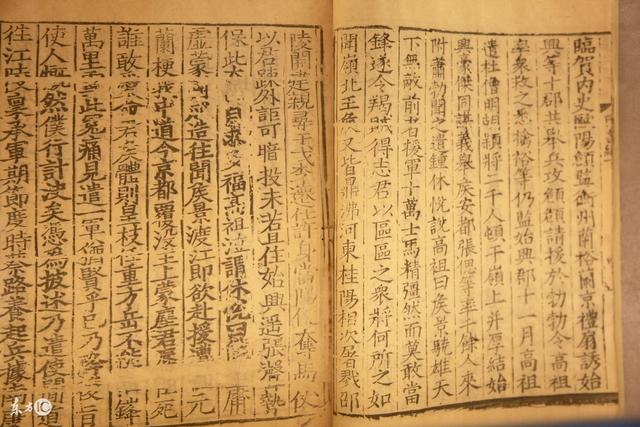 臨賀內史歐陽頠監衡州蘭裕蘭京禮扇誘始
興等十郡共舉兵攻頠頠請援於勃勃令高祖
率衆救之悉擒裕等仍監始興郡十一月高祖
遣杜僧明胡穎將二千人頓于嶺上并厚結始
興豪傑同謀義舉侯安都張偲等率千餘人來
附蕭勃聞之遣鍾休悅說高祖曰侯景驍雄天
下無敵前者援軍十萬士馬精彊然而莫敢當
鋒遂令羯賊得志君以區區之衆將何所之如
聞嶺北王侯又皆鼎沸河東桂陽相次屠戮邵
陵開建親尋干戈李遷仕許身當陽便奪馬仗
以君疎外詎可暗投未若且住始興遙張聲勢
保此太自求多福高祖泣謂休悅曰庸
虛蒙國成造往聞侯景渡江即欲赴援遭元
蘭梗我中道今京都覆沒主上蒙塵君辱臣死
誰敢愛命君侯體則皇枝任重方岳不能鋒
萬里雪此冤痛見遣一軍猶賢乎已乃降後旨
使人慨然僕行計決矣憑為披述乃遣使間道
往江陵稟承軍期節度時蔡路養起兵據南
東方IC